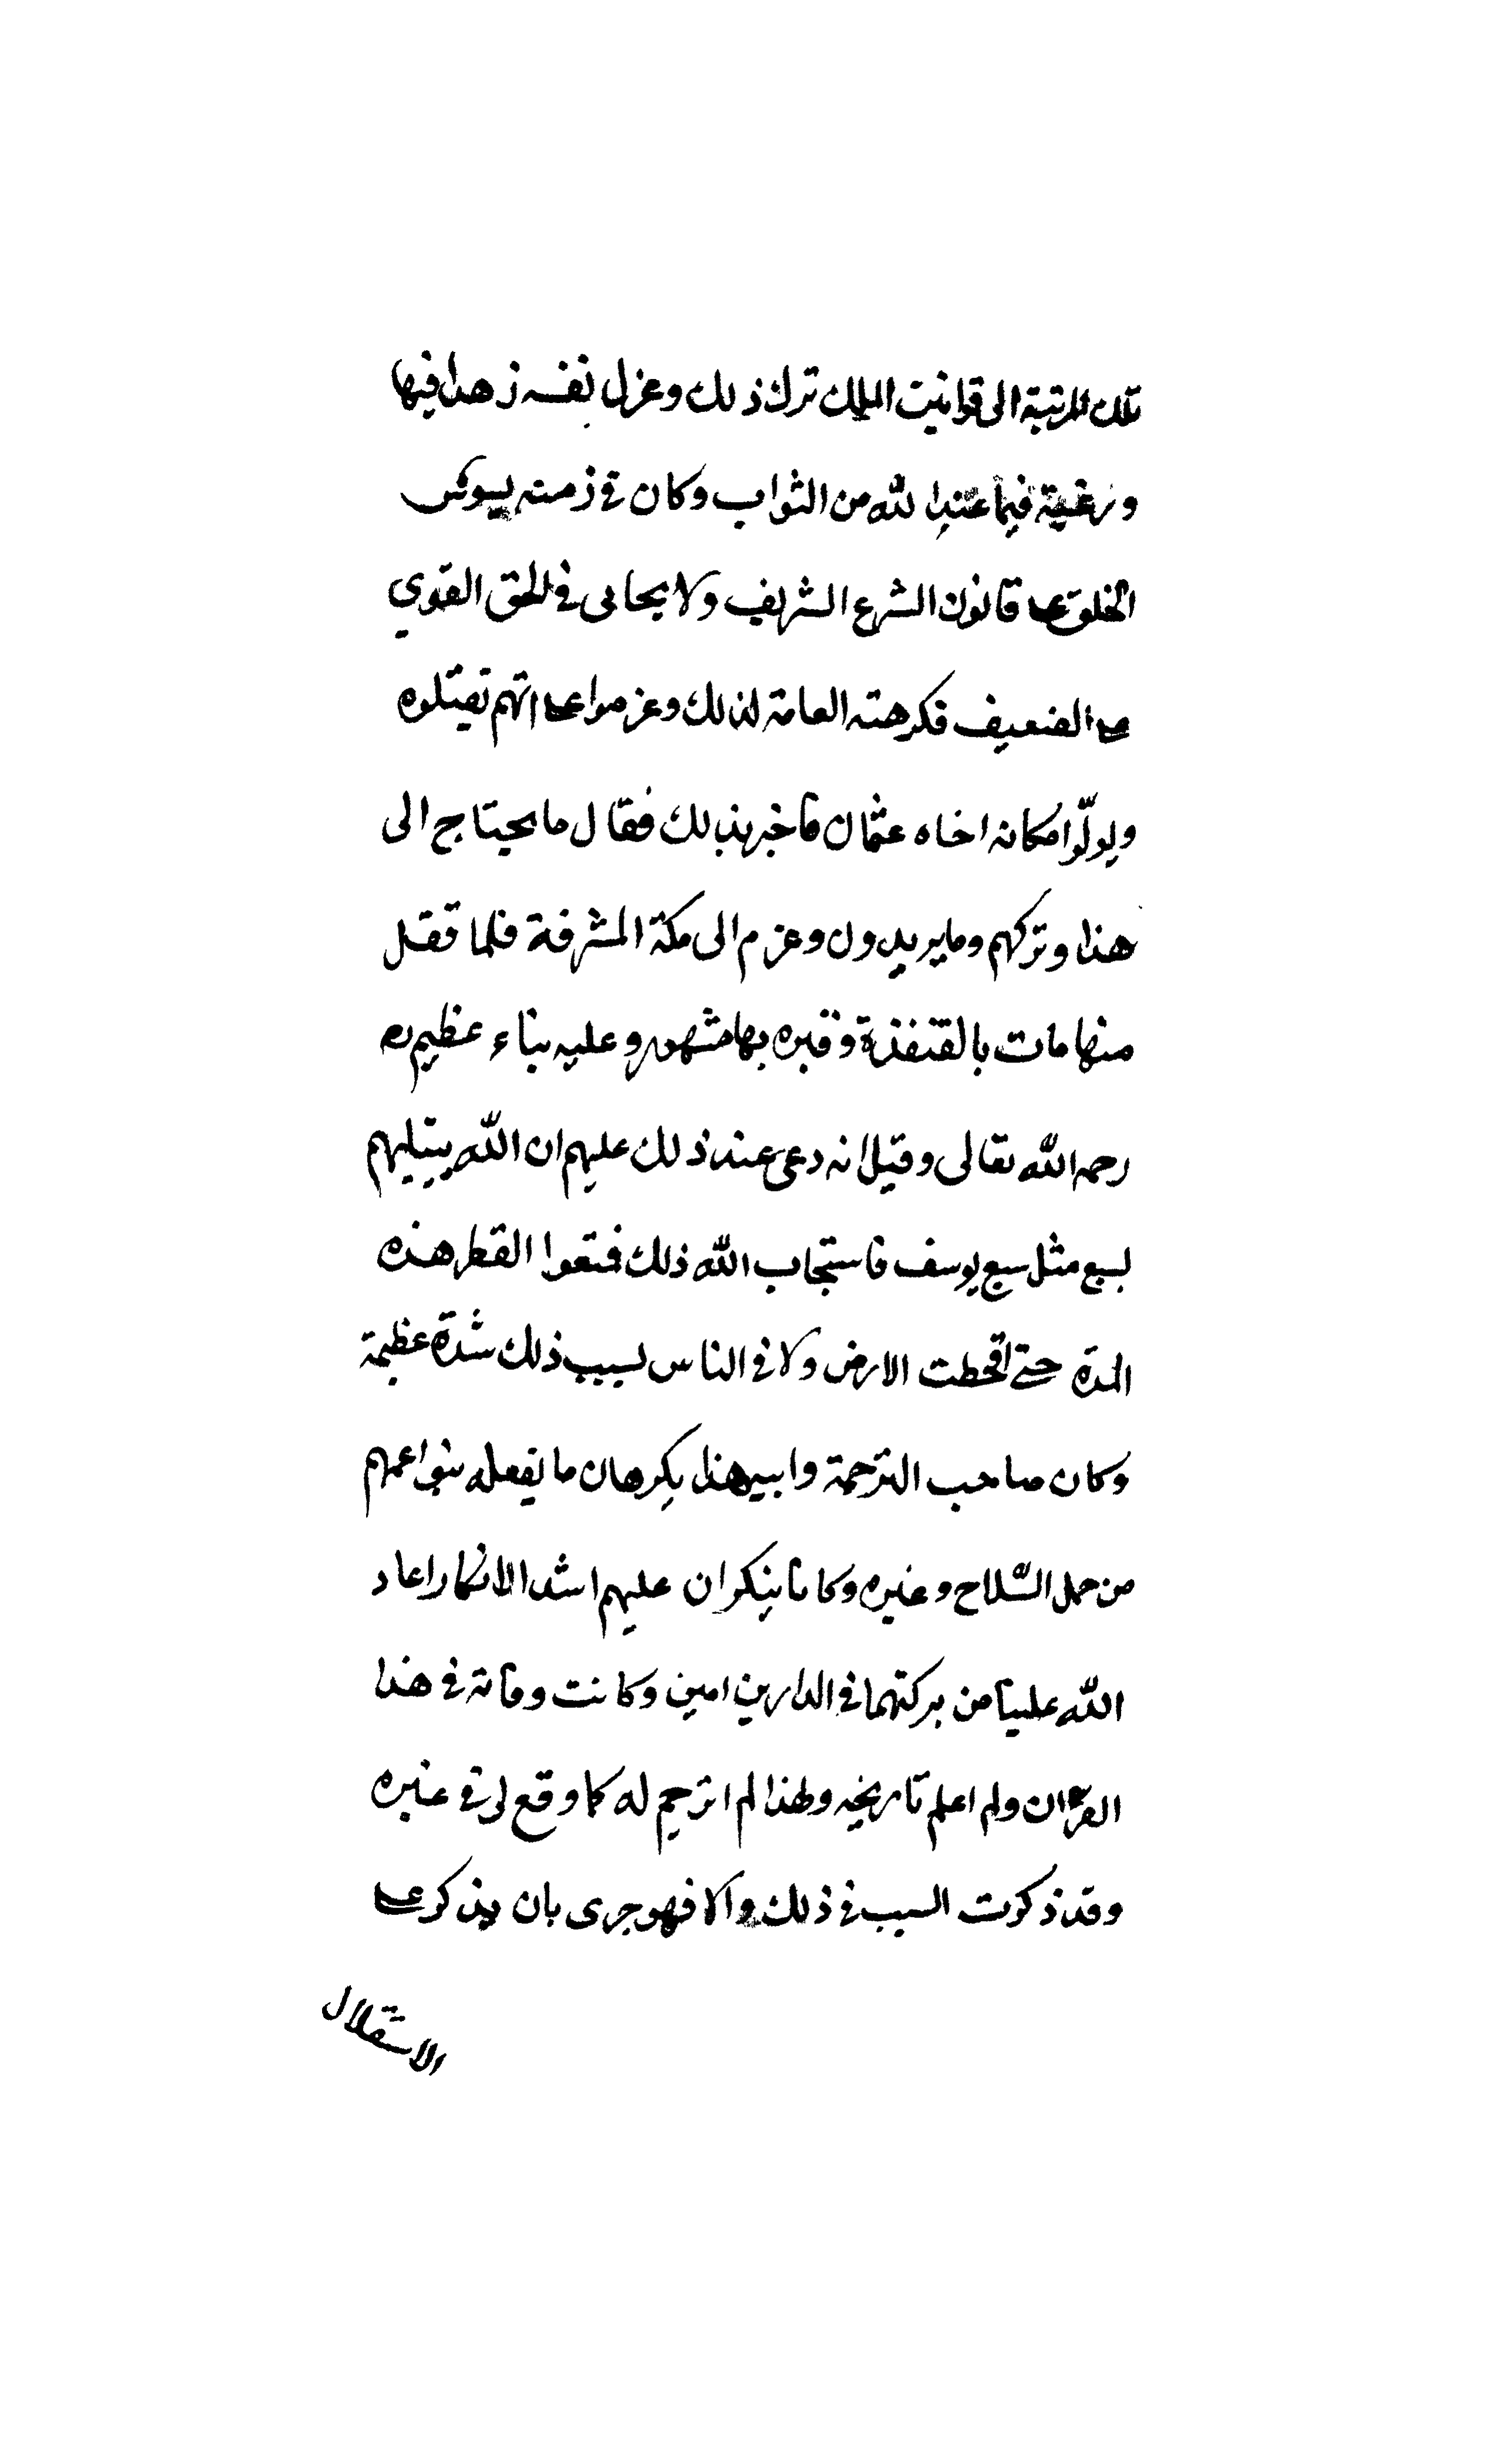 تلك المرتبة الى قوانين الملك ترك ذلك وعزل نفسه زهدا فيها
ورغبة فيما عند الله من الثواب وكان في زمنه يسوس
الخلق على قانون الشرع الشريف ولا يحابى في الحق القوي
على الضعيف فكرهته العامة لذلك وعزموا على انهم تقتلوه
ويولّوا مكانه اخاه عثمان فاخبر بذلك فقال ما يحتاج الى
هذا وتركهم وما يريدون وعزم الى مكة المشرفة فلما قفل
منها مات بالقنفذة وقبره بها مشهور وعليه بناء عظيم
رحمه الله تعالى وقيل انه دعى عند ذلك عليهم ان الله يبتليهم
بسبع مثل سبع يوسف فاستجاب الله ذلك فمنعوا القطر هذه
المدة حتى اقحطت الارض ولا فى الناس بسبب ذلك شدة عظيمة
وكان صاحب الترجمة وابيه هذا يكرهان ما يفعله بنوا عمهم
من حمل السّلاح وغيره وكانا ينكران عليهم اشد الانكار اعاد
الله علينا من بركتهما في الدارين امين وكانت وفاته في هذا
القرن ولم اعلم تاريخه ولهذا لم اترجم له كما وقع لى في غيره
وقد ذكرت السبب في ذلك والا فهو جرى بان يذكر على
الاستقلال